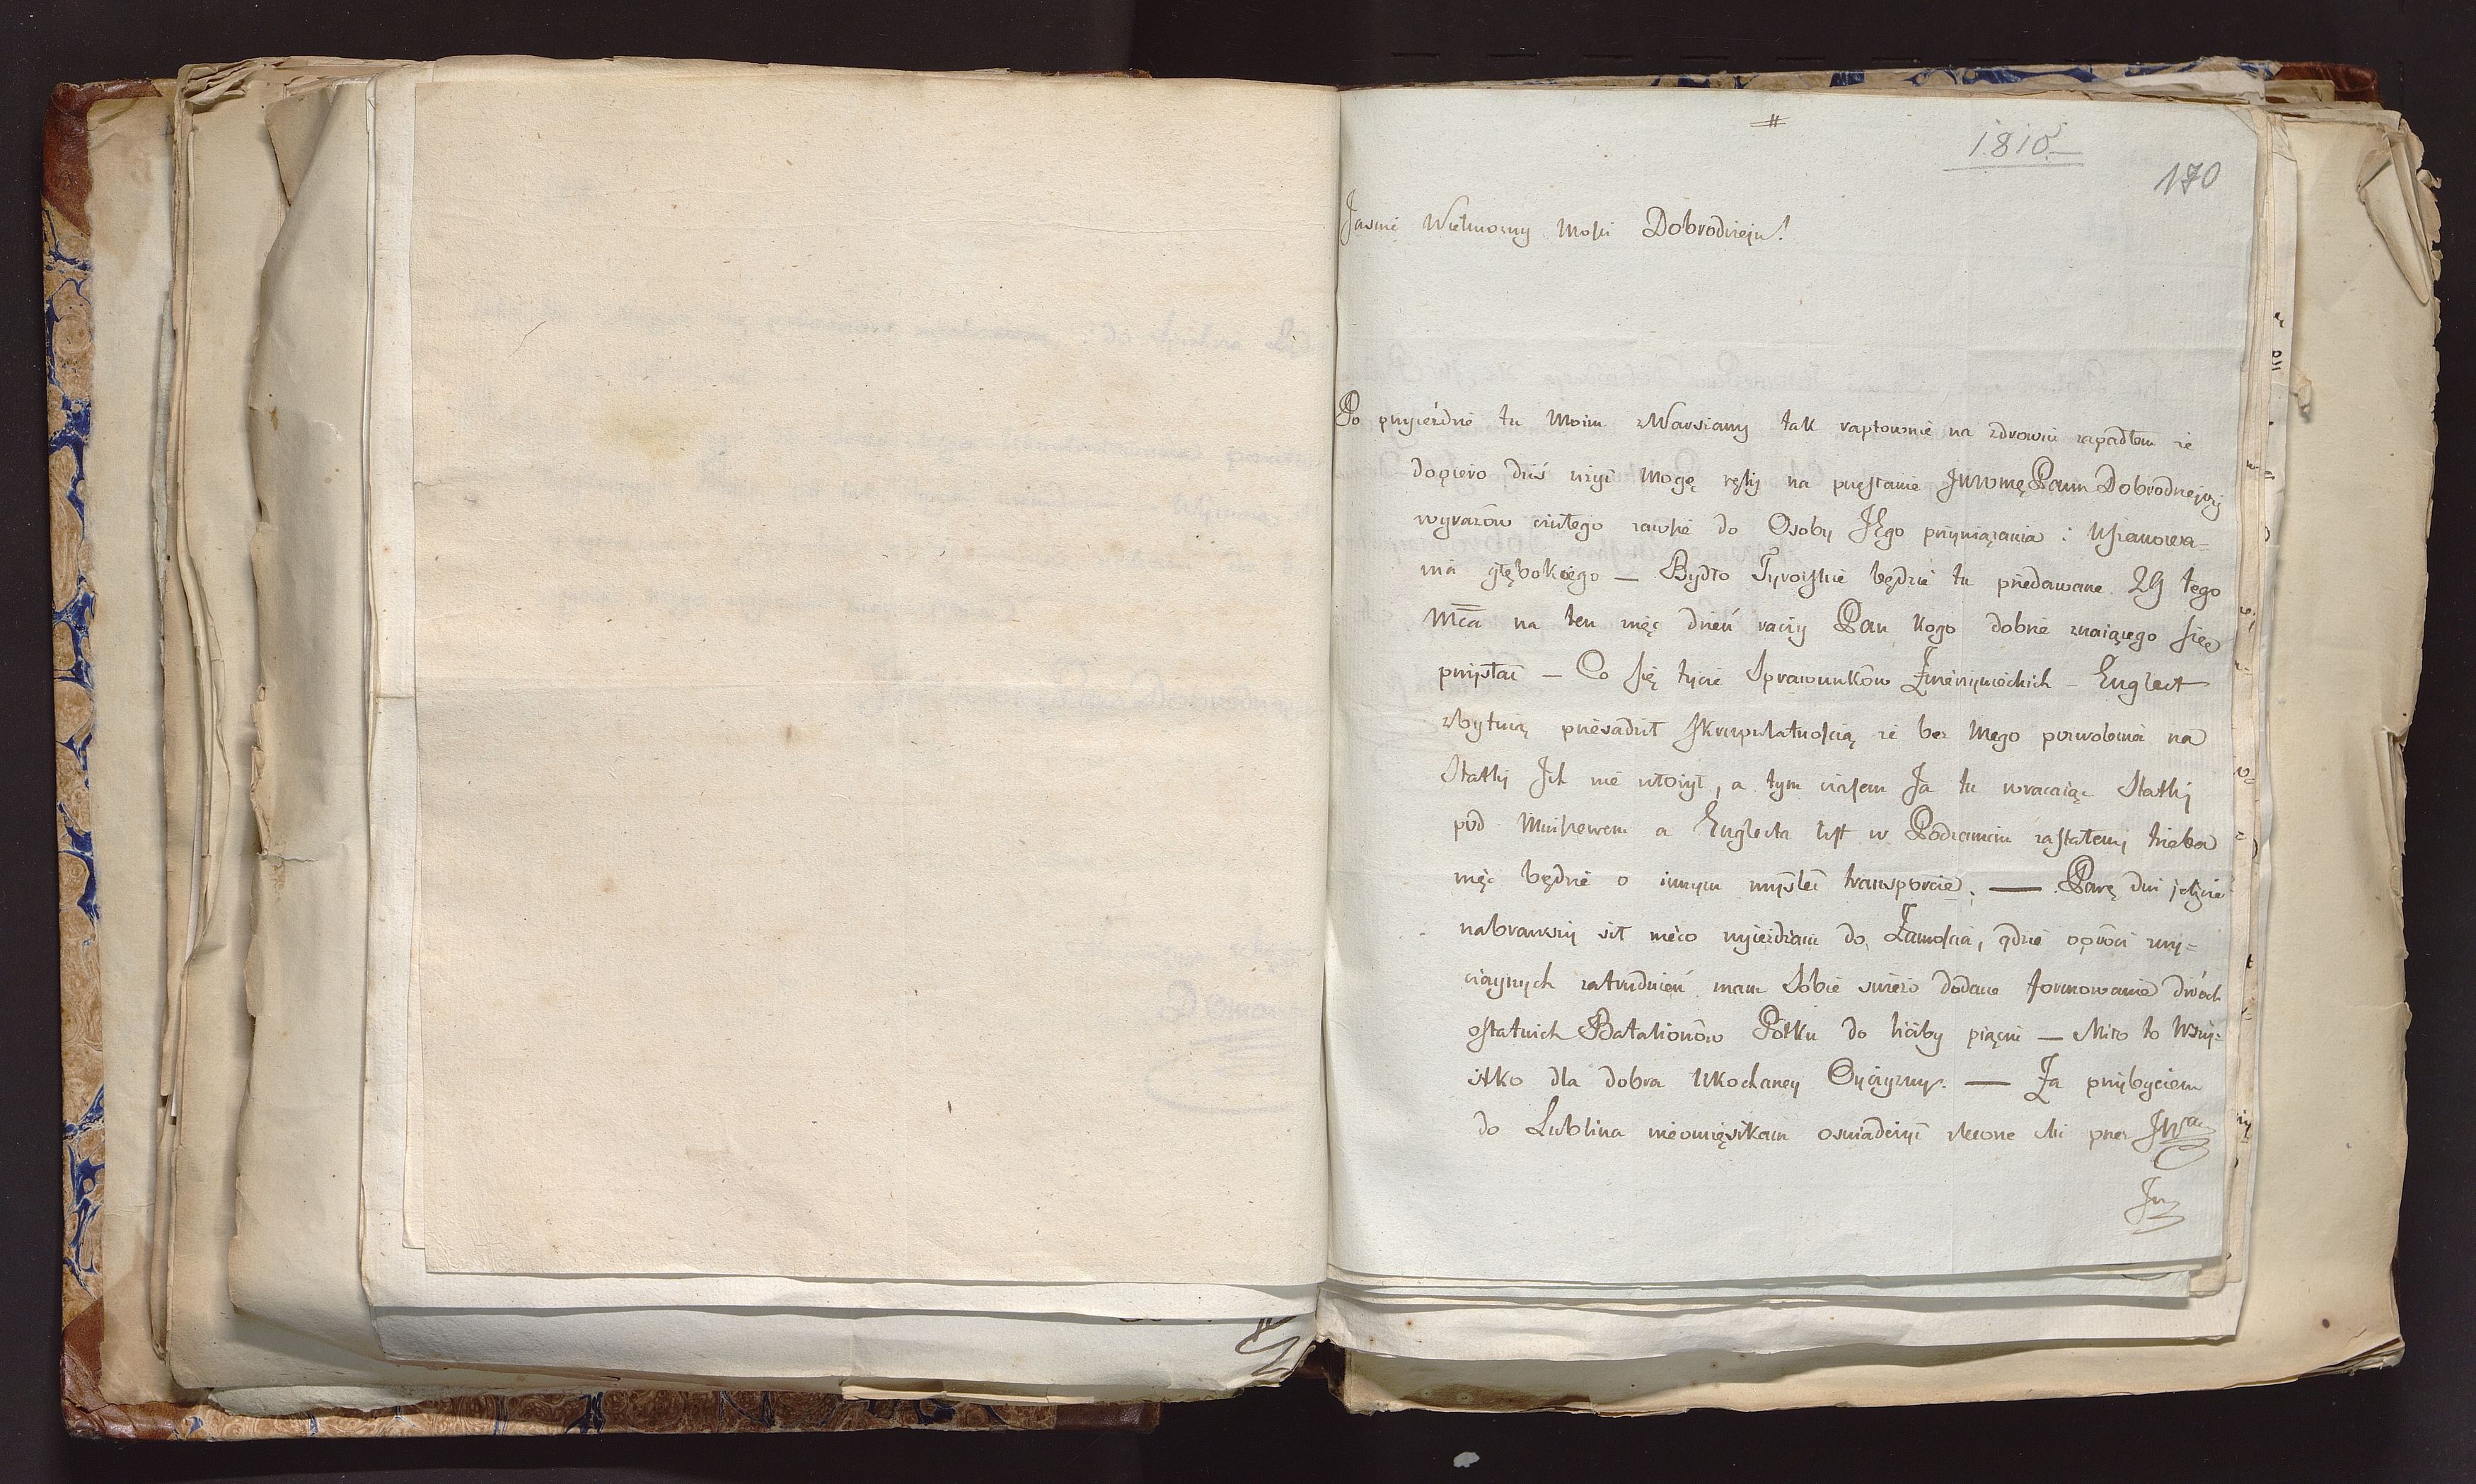 #
1810
170
Jasnie Wielmozny Mosci Dobrodzieju!
Po przyieździe tu Moim z Warszawy tak raptownie na zdrowiu zapadłem że
dopiero dziś użyć Mogę ręky na przesłanie JWWMę Panu Dobrodziejowj
wyrazów czułego zawsze do Osoby JEgo przywiązania i Uszanowa=
nia głębokiego — Bydło Tyrolskie będzie tu przedawane 29 tego
Mca na ten więc dzień raczy Pan kogo dobrze znaiącego się
przysłać — Co się tycze Sprawunków Zwierzynieckich – Englert
zbytnią przesadził skrupulatnością że bez Mego pozwolenia na
Statki Jch nie włożył, a tym czasem Ja tu wracaiąc Statki
pod Mniszewem a Englerta list w Podzamczu zastałem; trzeba
więc będzie o innym myśleć transporcie; — Parę dni jeszcze
nabrawszy sił nieco wyieżdżam do Zamościa, gdzie oprócz zwy=
czaynych zatrudnień mam Sobie świeżo dodane formowanie dwóch
ostatnich Batalionów Półku do liczby piąciu — Miło to Wszy=
stko dla dobra Ukochaney Oyczyzny. — Za przybyciem
do Lublina nieomięszkam oswiadczyć zlecone Mi przez JW
JW